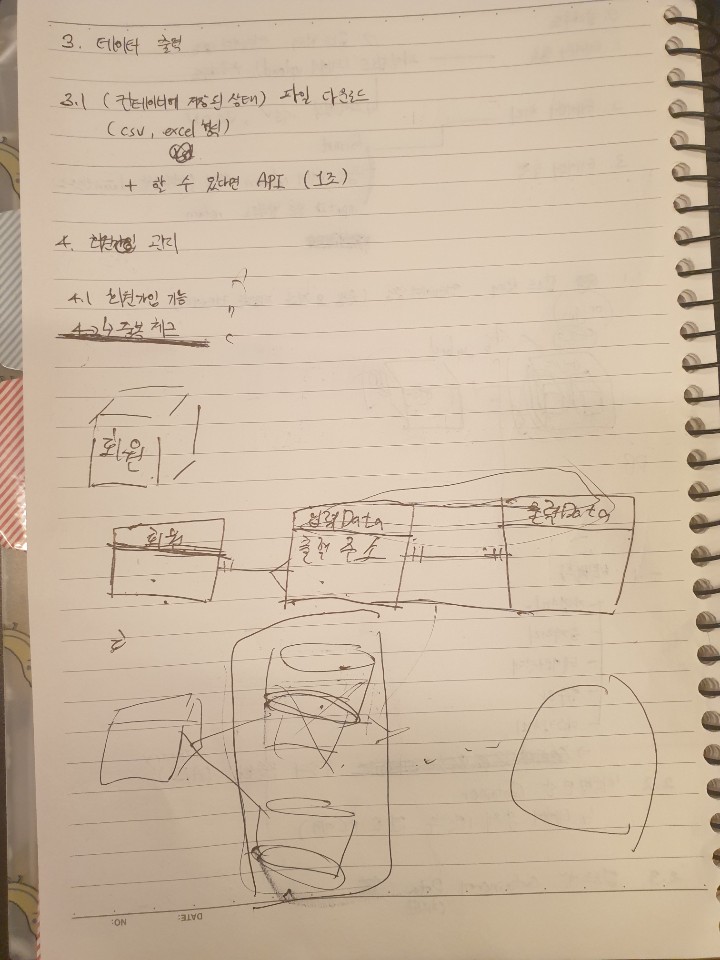 3. 데이터 출력
3.1 (컨테이너에 저장된 상태) 파일 다운로드
(csv, excel 형식)
+ 할 수 있다면 API (1조)
4. 회원가입 관리
4.1 회원가입 기능
중복 체크
회원
회원
입력Data
출력Data
출력 주소
DATE:
NO: